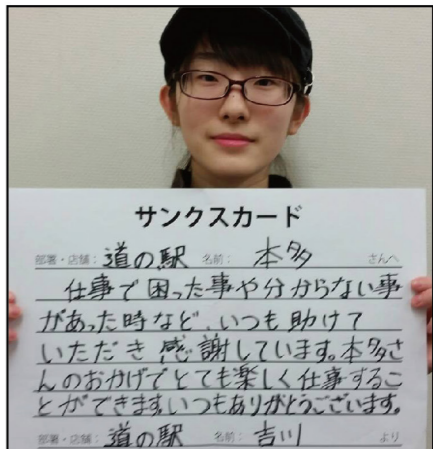 サンクスカード
部署・店舗：道の駅 名前：本多 さんへ
仕事で困った事や分からない事
があった時など、いつも助けて
いただき感謝しています。本多さ
んのおかげでとても楽しく仕事するこ
とができます。いつもありがとうございます。
部署・店舗：道の駅 名前：吉川 より